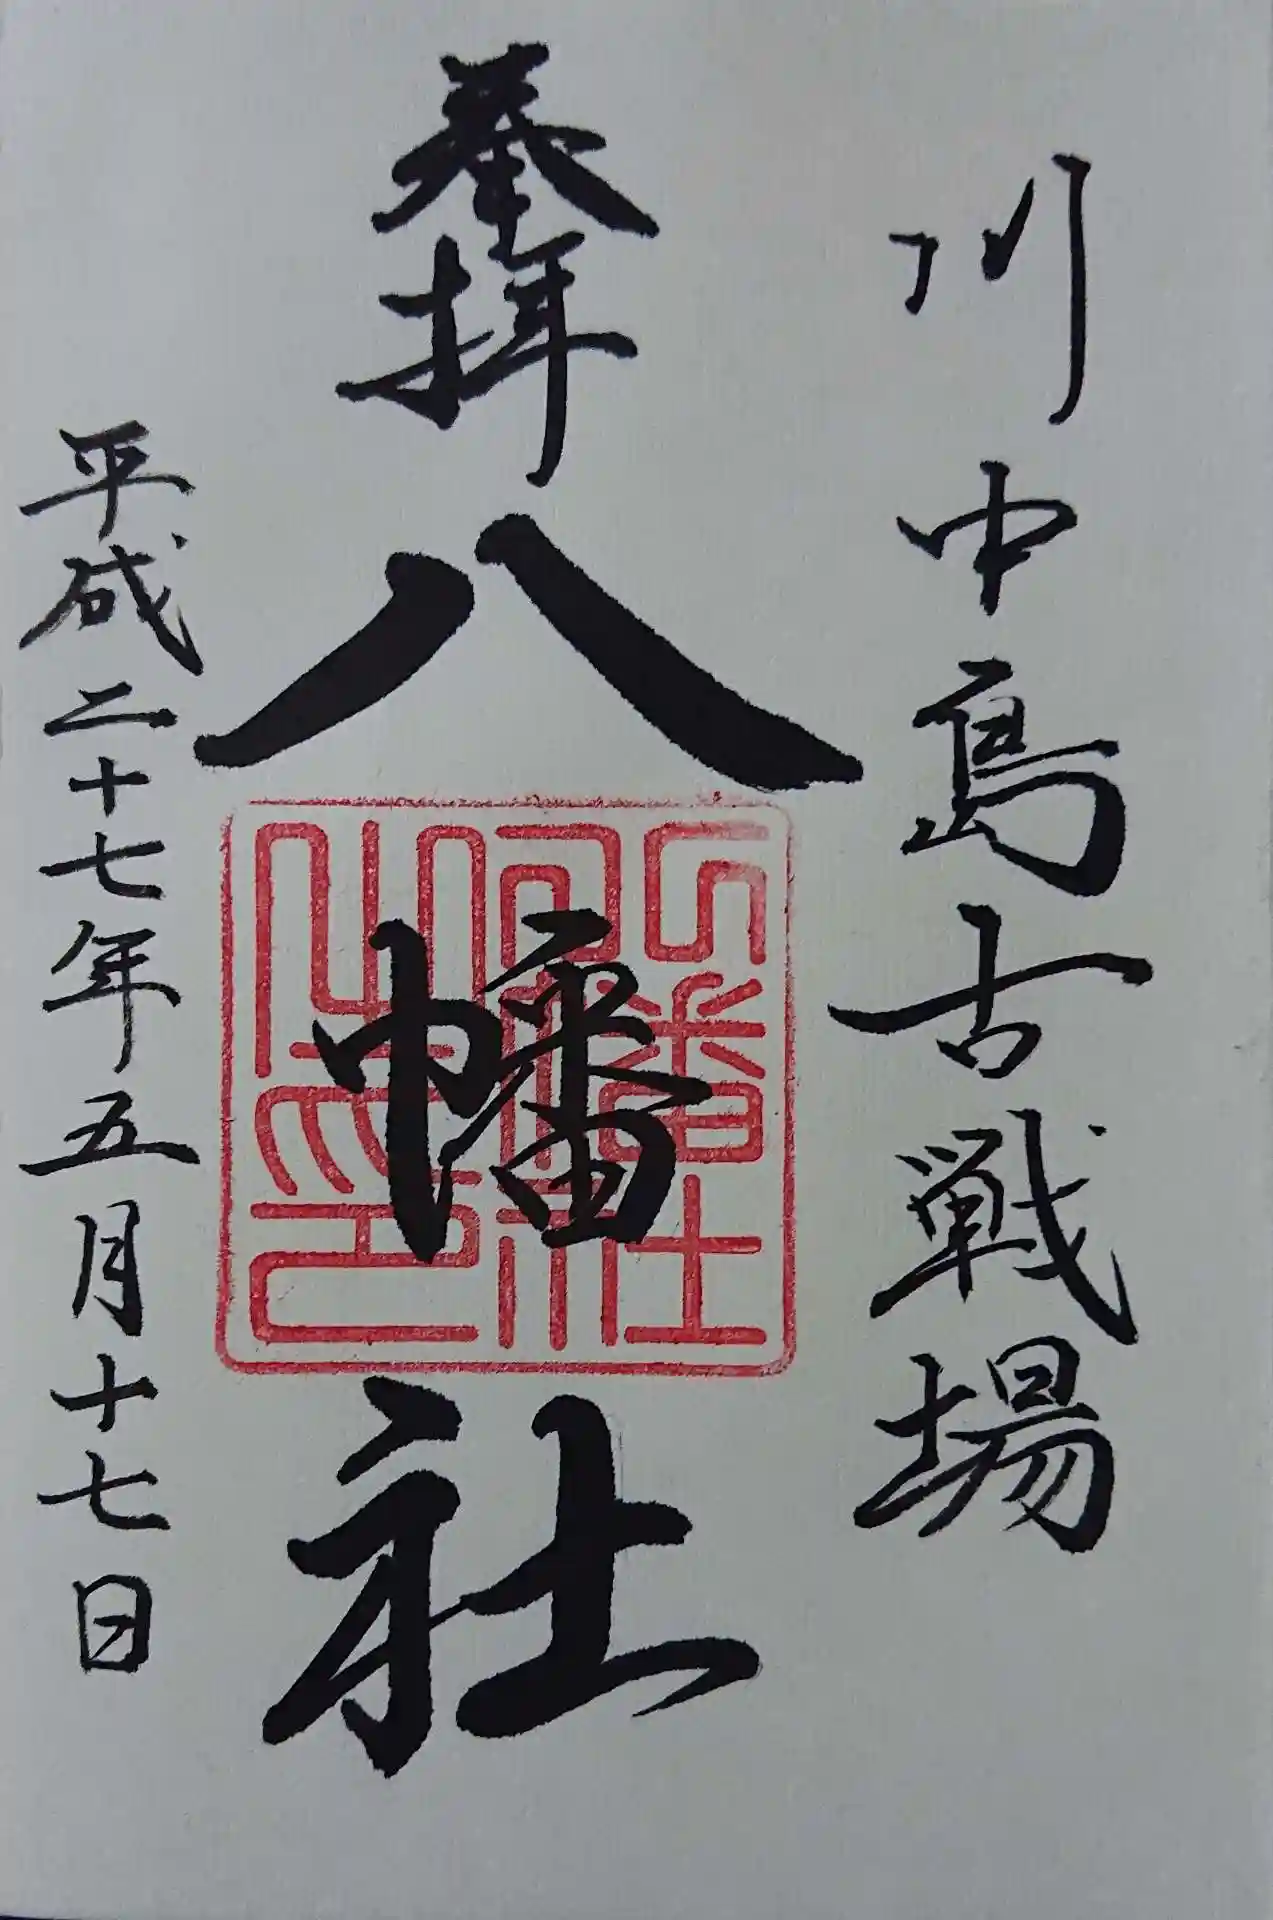 川中島古戦場
奉拝
八幡社
八幡社
神社
之印
平成二十七年五月十七日